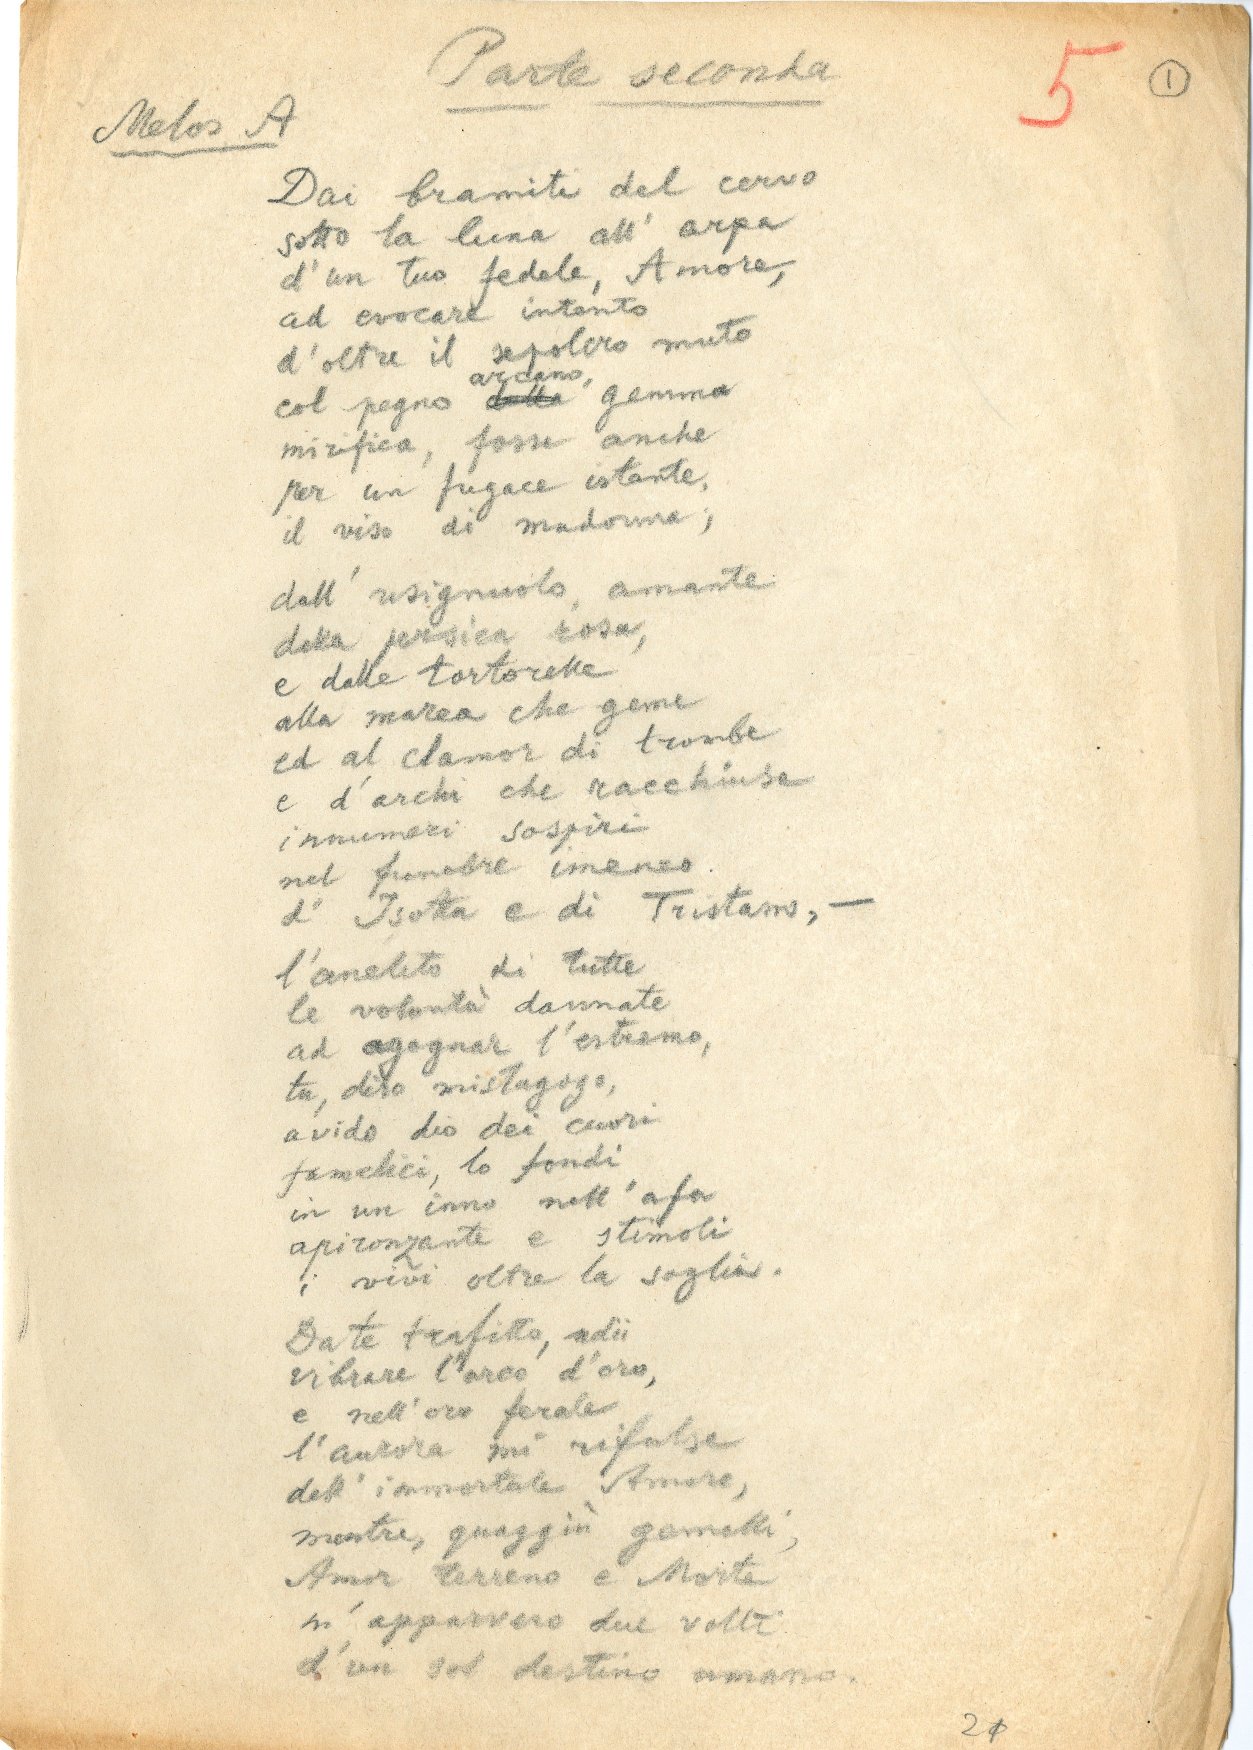 Parte seconda
5
1
Melos A
Dai bramiti del cervo
sotto la luna all' arpa
d'un tuo fedele, Amore,
ad evocare intento
d'oltre il sepolcro muto
arcano,
col pegno gemma
mirifica, fosse anche
per un fugace istante,
il viso di madonna;
dall' usignuolo, amante
della persica rosa,
e dalle tortorelle
alla marea che geme
ed al clamor di trombe
e d'archi che racchiuse
innumeri sospiri
nel funebre imeneo
d' Isotta e di Tristano, —
l'anelito di tutte
le volontà dannate
ad agognar l'estremo,
tu, diro mistagogo,
avido dio dei cuori
famelici, lo fondi
in un inno nell'afa
e stimoli
i vivi oltre la soglia.
Da te trafitto, udii
vibrare l'arco d'oro,
e nell'oro ferale
l'aurora mi rifulse
dell' immortale Amore,
mentre, quaggiù gemelli,
Amor terreno e Morte
m'apparvero due volti
d'un sol destino umano.